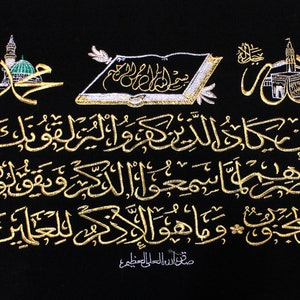 محمد
بسم الله الرحمن الرحيم
يكاد الذين كفروا ليزلقونك
لما سمعوا الذكر ويقولو
لمجنون * وما هو إلا ذكر للعالمين
صدق الله العلي العظيم